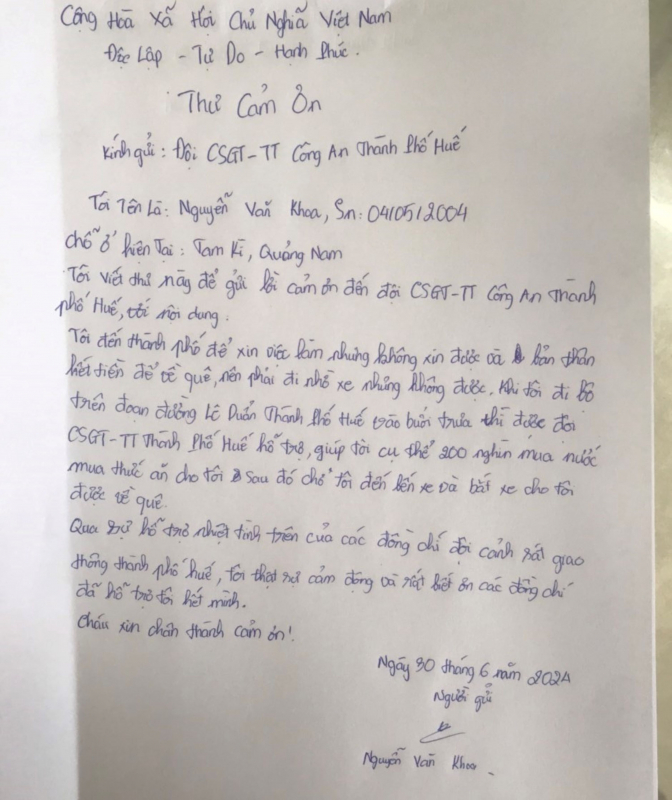 Cộng Hoà Xã Hội Chủ Nghĩa Việt Nam
Độc Lập - Tự Do - Hạnh Phúc.
Thư Cảm Ơn
Kính gửi : Đội CSGT-TT Công An Thành Phố Huế
Tôi Tên Là : Nguyễn Văn Khoa, Sn : 04/05/2004
Chỗ ở hiện Tại : Tam Kì, Quảng Nam
Tôi viết thư này để gửi lời cảm ơn đến đội CSGT-TT Công An Thành
phố Huế, với nội dung :
Tôi đến thành phố để xin việc làm nhưng không xin được và bản thân
hết tiền để về quê, nên phải đi nhờ xe nhưng không được. Khi tôi đi bộ
trên đoạn đường Lê Duẩn Thành Phố Huế vào buổi trưa thì được đội
CSGT-TT Thành Phố Huế hỗ trợ, giúp tôi cụ thể 200 nghìn mua nước
mua thức ăn cho tôi sau đó chở tôi đến bến xe và bắt xe cho tôi
được về quê.
Qua sự hỗ trợ nhiệt tình trên của các đồng chí đội cảnh sát giao
thông thành phố huế, Tôi thật sự cảm động và rất biết ơn các đồng chí
đã hỗ trợ tôi hết mình.
Cháu xin chân thành cảm ơn!
Ngày 30 tháng 6 năm 2024
Người gửi
Nguyễn Văn Khoa